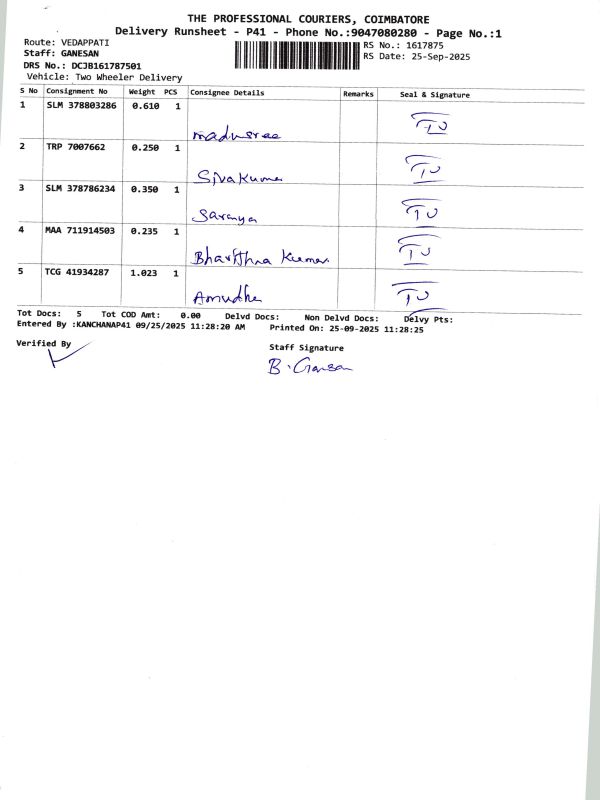 THE PROFESSIONAL COURIERS, COIMBATORE
Delivery Runsheet - P41 - Phone No.:9047080280 - Page No.:1
Route: VEDAPPATI RS No.: 1617875
Staff: GANESAN RS Date: 25-Sep-2025
DRS No.: DCJB161787501
Vehicle: Two Wheeler Delivery
S No Consignment No Weight PCS Consignee Details Remarks Seal & Signature
1 SLM 378803286 0.610 1 madusree
2 TRP 7007662 0.250 1 Sivakumar
3 SLM 378786234 0.350 1 Saranya
4 MAA 711914503 0.235 1 Kumar
5 TCG 41934287 1.023 1 Amudha
Tot Docs: 5 Tot COD Amt: 0.00 Delvd Docs: Non Delvd Docs: Delvy Pts:
Entered By :KANCHANAP41 09/25/2025 11:28:20 AM Printed On: 25-09-2025 11:28:25
Verified By Staff Signature
B.